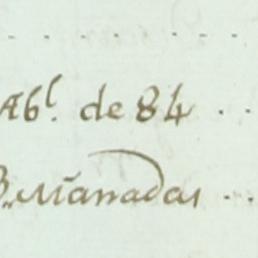 Abl. de 84
B. Manadas